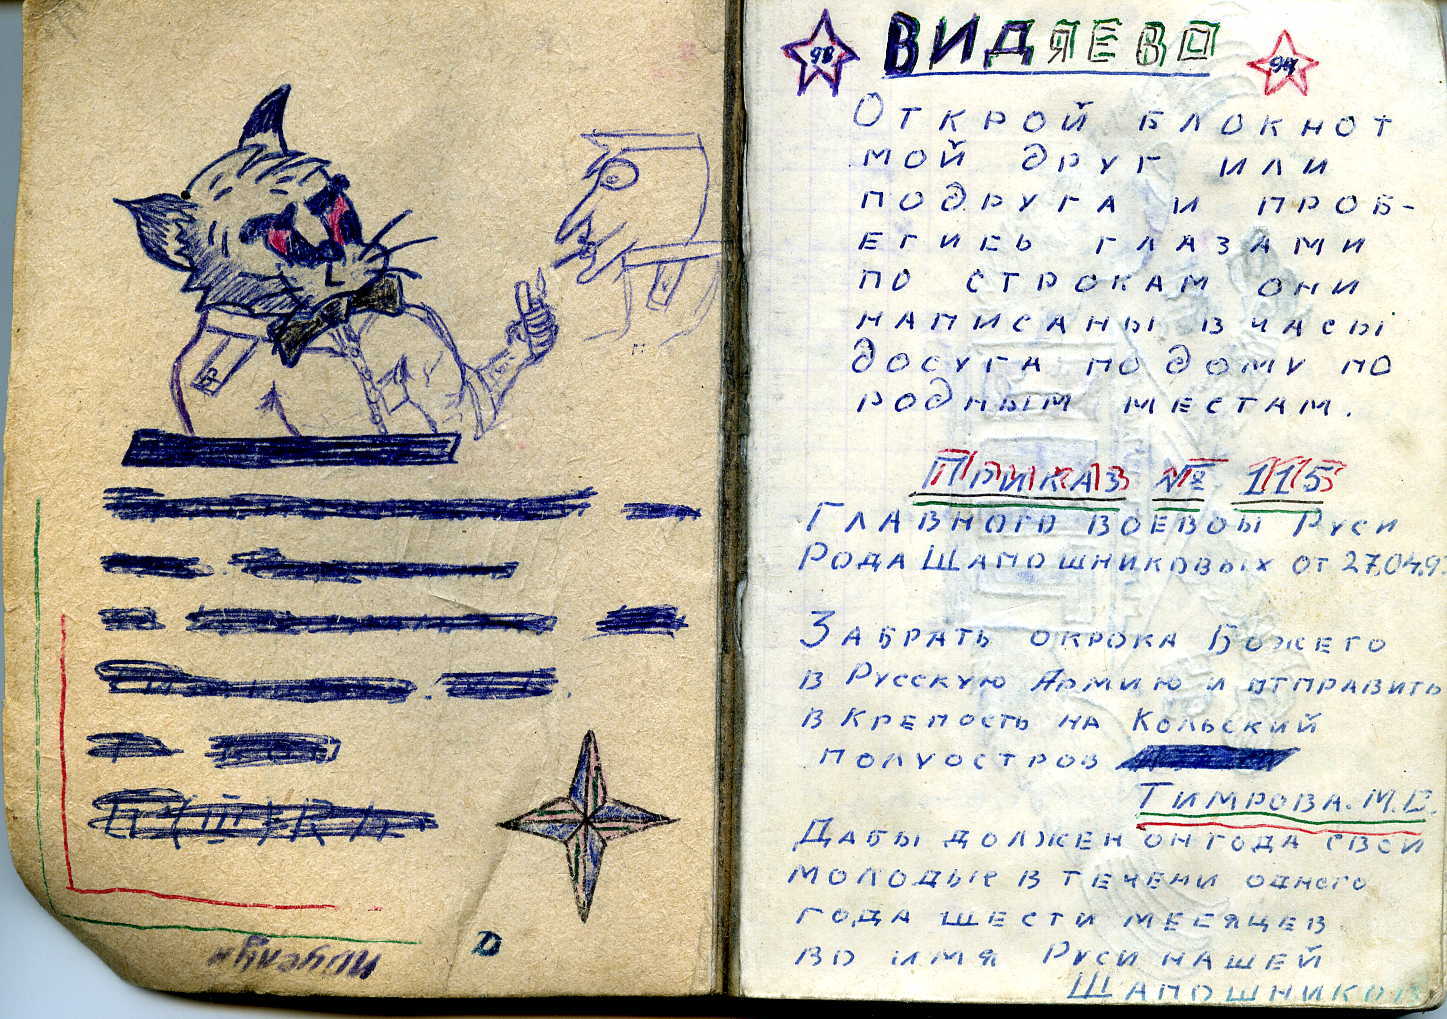 98 ВИДЯЕВО 97
ОТКРОЙ БЛОКНОТ
МОЙ ДРУГ ИЛИ
ПОДРУГА И ПРОБ-
ЕГИСЬ ГЛАЗАМИ
ПО СТРОКАМ ОНИ
НАПИСАНЫ В ЧАСЫ
ДОСУГА ПО ДОМУ ПО
РОДНЫМ МЕСТАМ.
ПРИКАЗ № 115
ГЛАВНОГО ВОЕВОЫ РУСИ
РОДА ШАПОШНИКОВЫХ ОТ 27.04.9
ЗАБРАТЬ ОКРОКА БОЖЕГО
В РУССКУЮ АРМИЮ И ОТПРАВИТЬ
В КРЕПОСТЬ НА КОЛЬСКИЙ
ПОЛУОСТРОВ
ТИМРОВА.М.В.
ДАБЫ ДОЛЖЕН ОН ГОДА СВОИ
МОЛОДЫЕ В ТЕЧЕНИ ОДНОГО
ГОДА ШЕСТИ МЕСЯЦЕВ
ВО ИМЯ РУСИ НАШЕЙ
ШАПОШНИКОВ